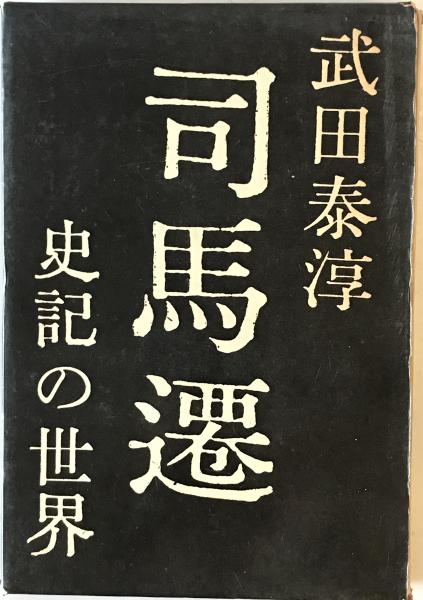 武田泰淳
司馬遷
史記の世界